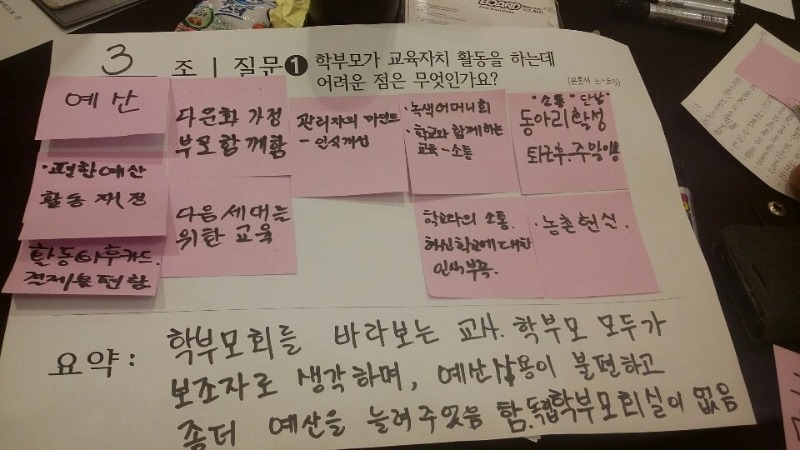 3 조 | 질문 ❶ 학부모가 교육자치 활동을 하는데
어려운 점은 무엇인가요?
예산
편한예산
활동
활동 이후카드.
결제 불편함
다문화 가정
부모함께함
다음 세대를
위한 교육
관리자의 마인드
- 인식개선
· 녹색어머니회
· 학교와 함께하는
교육 - 소통
학교와의 소통.
혁신학교에 대한
인식부족.
"소통" 단절
동아리학성
퇴근후. 주말
· 농촌현실.
요약 : 학부모회를 바라보는 교사. 학부모 모두가
보조자로 생각하며, 예산사용이 불편하고
좀더 예산을 늘려주었음 함. 독립학부모회실이 없음
BOARD